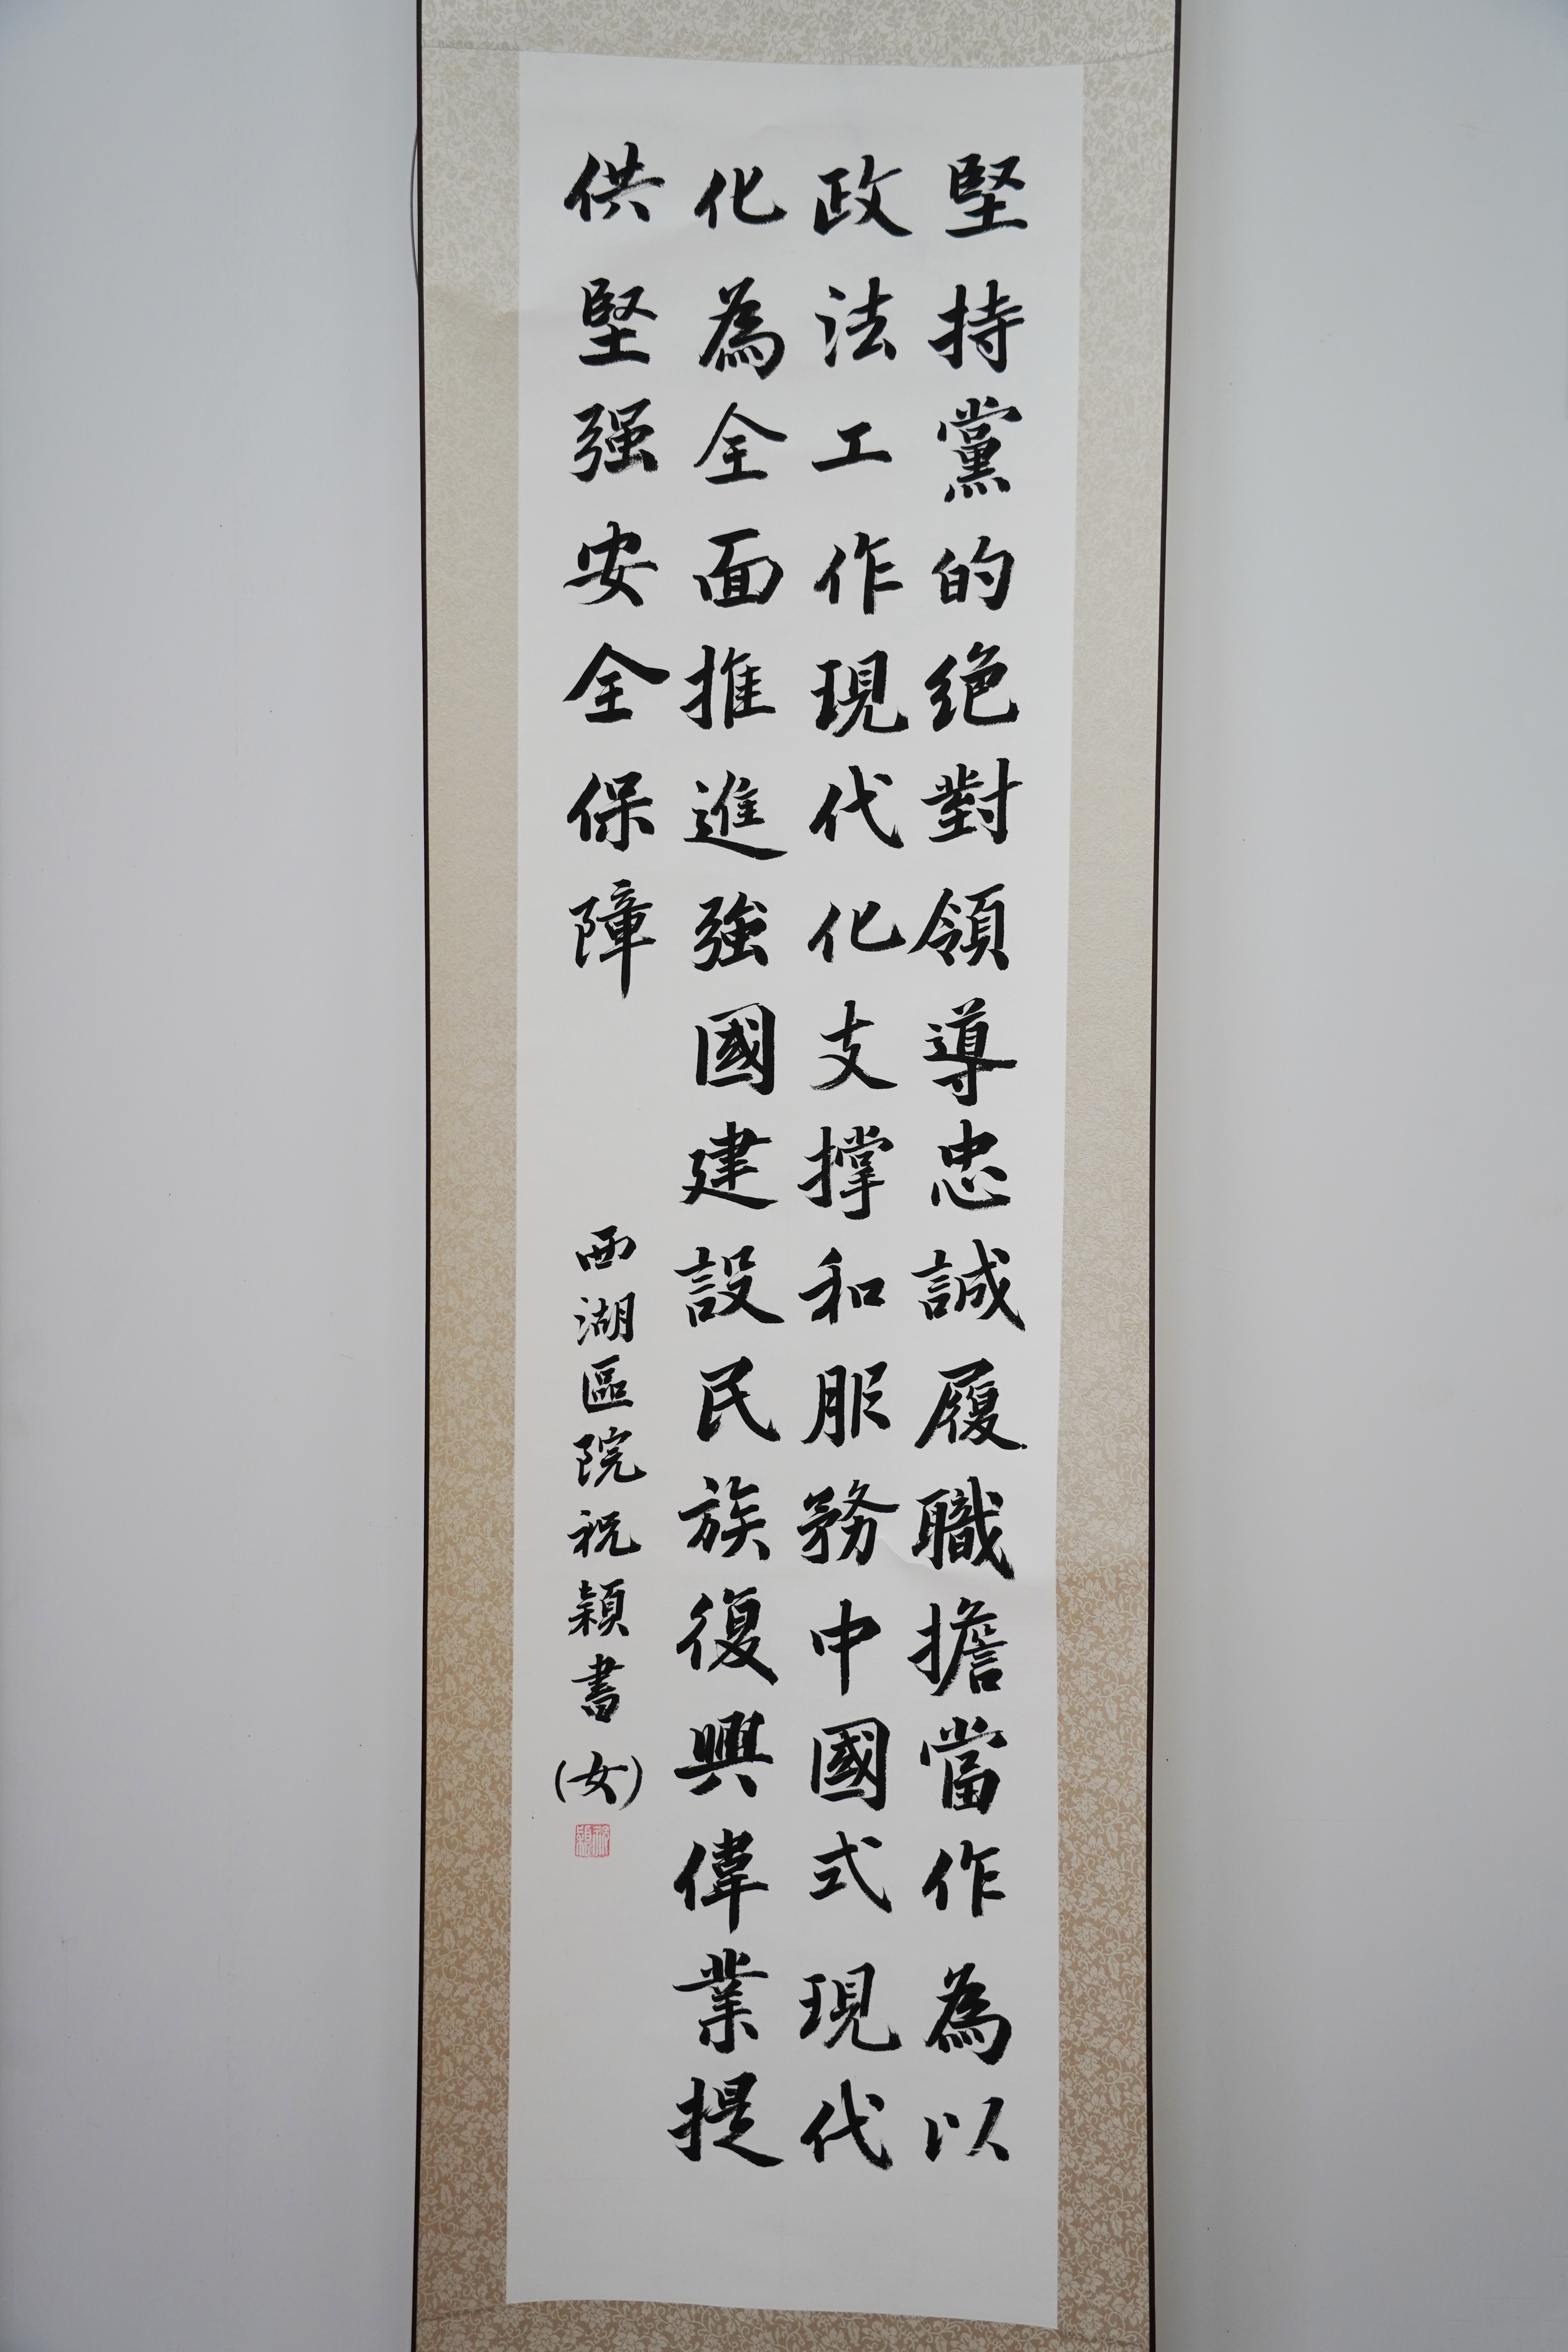 堅持黨的绝對領導忠誠履職擔當作為以
政法工作現代化支撐和服務中國式現代
化為全面推進強國建設民族復興偉業提
供堅强安全保障
西湖區院祝穎書(女)